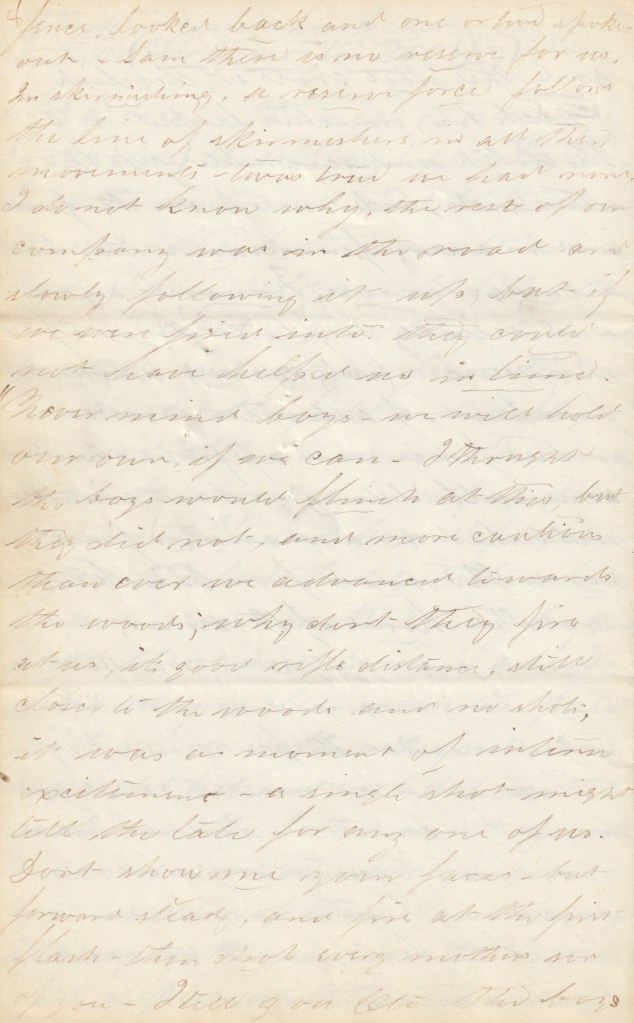 fence, looked back and one or two spoke
out - Sam there is no reserve for us.
In skirmishing, a reserve force follows
the line of skirmishers in all their
movements - twas true we had none.
I do not know why, the rest of our
company was in the road and
slowly following it up, but if
we were fired into, they could
not have helped us in time.
"Never mind boys - we will hold
our own, if we can - I thought
the boys would flinch at this, but
they did not, and more cautious
than ever we advanced towards
the woods, why dont they fire
at us, its good rifle distance, still
closer to the woods and no shot,
it was a moment of intense
excitement - a single shot might
tell the tale for any one of us.
Dont show me your faces - but
forward steady, and fire at the first
flash - then drop every mothers son
of you - I tell you the boys